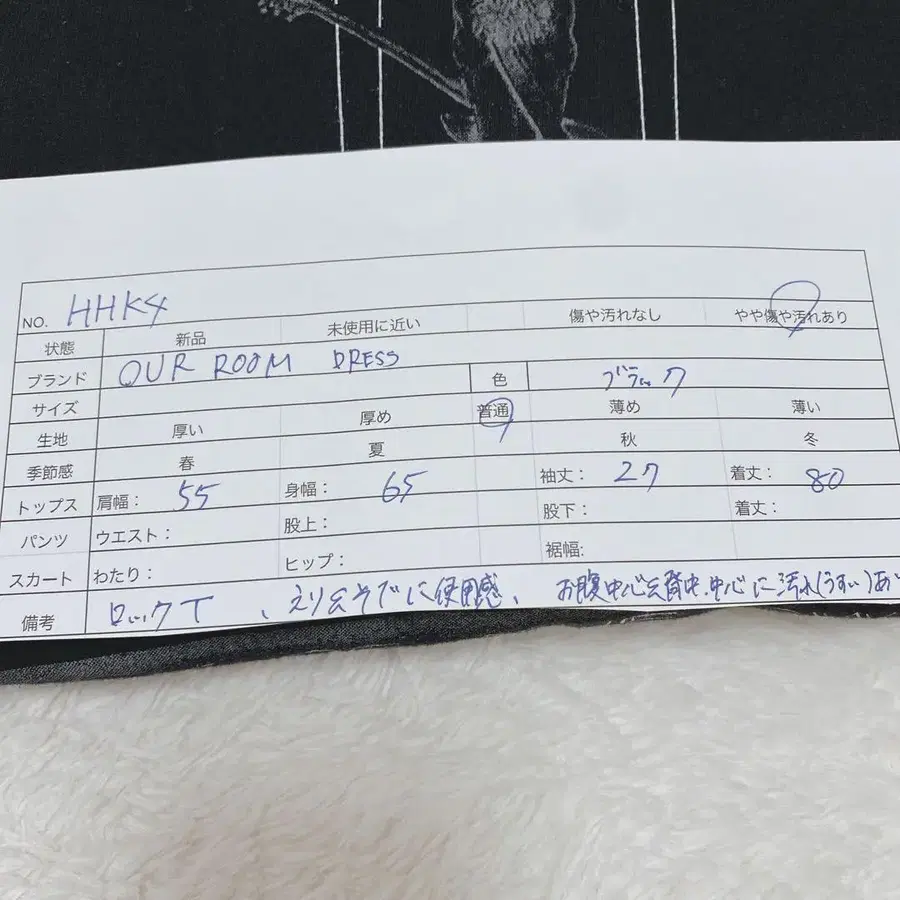 NO. HHK4
状態 新品 未使用に近い 傷や汚れなし やや傷や汚れあり
ブランド OUR ROOM DRESS 色 ブラック
サイズ
生地 厚い 厚め 普通 薄め 薄い
季節感 春 夏 秋 冬
トップス 肩幅： 55 身幅： 65 袖丈： 27 着丈： 80
パンツ ウエスト： 股上： 股下： 着丈：
スカート わたり： ヒップ： 裾幅:
備考 ロックT 、えり&そでに使用感、 お腹中心&背中、中心に汚れ(うすい)あ